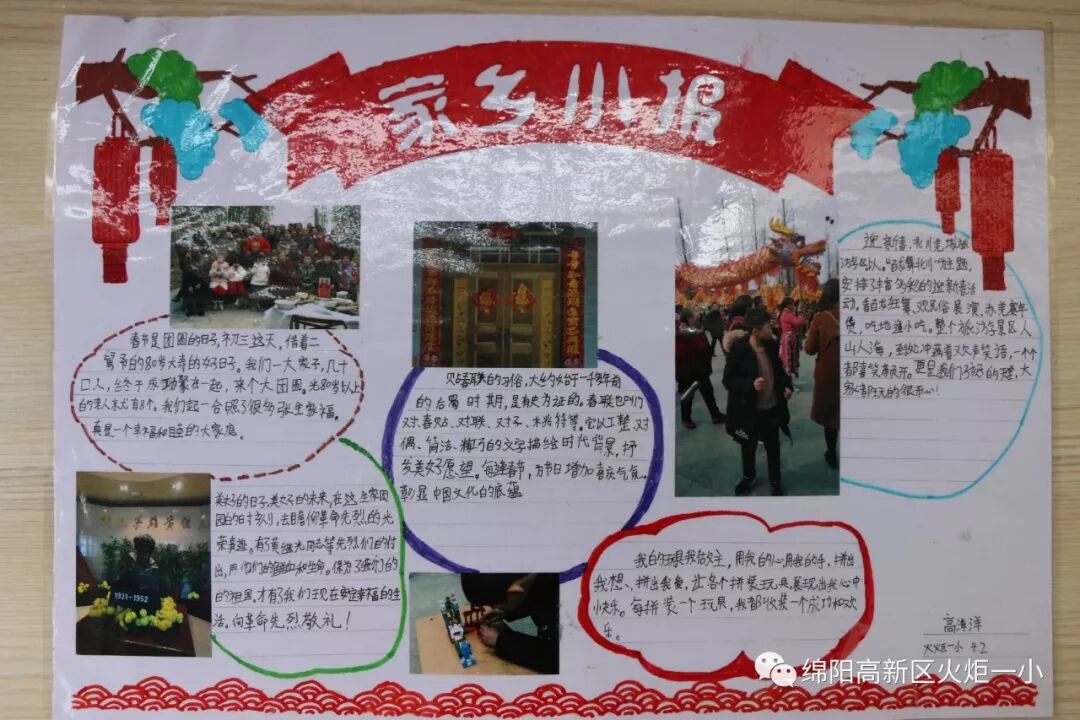 家乡小报
春节是团圆的日子,初三这天,借着二
爷的80岁大寿的好日子。我们一大家子,几十
口人,终于成功聚在一起,来个大团圆。光80岁以上
的老人家尤有8个。我们起一合照了很多张全家福。
真是一个幸福和睦的大家庭。
贴春联的习俗,大约始于一千多年前
的后蜀时期,是有史为证的。春联也叫门
对、春贴、对联、对子、桃符等。它以工整、对
偶、简洁、精巧的文字描绘时代背景,抒
发美好愿望。每逢春节,为节日增加喜庆气氛。
彰显中国文化的底蕴
迎新春,北川
安排了丰富多彩的迎新春活
动。看百龙狂舞,观民俗展演,办羌寨年
货,吃地道小吃。整个旅游景区人
山人海,到处冲满着欢声笑语,一个
都喜笑颜开。
家都玩的很开心!
美好的日子,美好的未来,在这全家团
圆的时刻,去瞻仰革命先烈的光
荣事迹。有了黄继光同志等先烈们的付
出,用他们的鲜血和生命。保为了我们的
的祖国。才有了我们现在安定幸福的生
活,向革命先烈敬礼!
1931-1952
我的玩具我做主,用我的心,用我的手,拼出
我想、拼出我象,让各个拼装玩具,展现出我心中
快乐。每拼装一个玩具,我都收获一个成功和欢
乐。
高海洋
火炬一小 4.2
绵阳高新区火炬一小